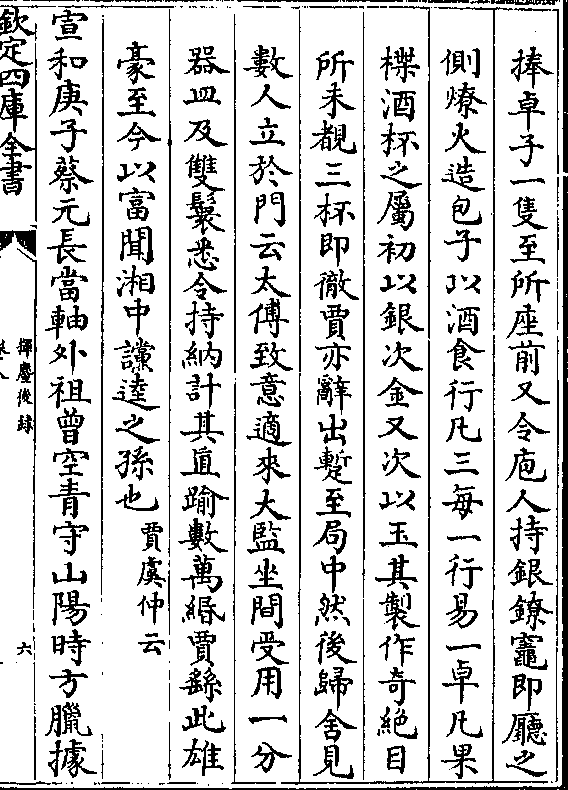 捧卓子一隻至所座前又令庖人持銀鐐竈即廳之
側燎火造包子以酒食行凡三每一行易一卓凡果
楪酒杯之屬初以銀次金又次以玉其製作奇絶目
所未覩三杯即徹賈亦辭出暫至局中然後歸舍見
數人立於門云太傅致意適來大監坐間受用一分
器皿及雙鬟悉令持納計其直踰數萬緡賈繇此雄
豪至今以富聞湘中讜逵之孫也賈虞仲云
宣和庚子蔡元長當軸外祖曾空青守山陽時方臘據
欽定四庫全書
揮麈後錄
卷八
六